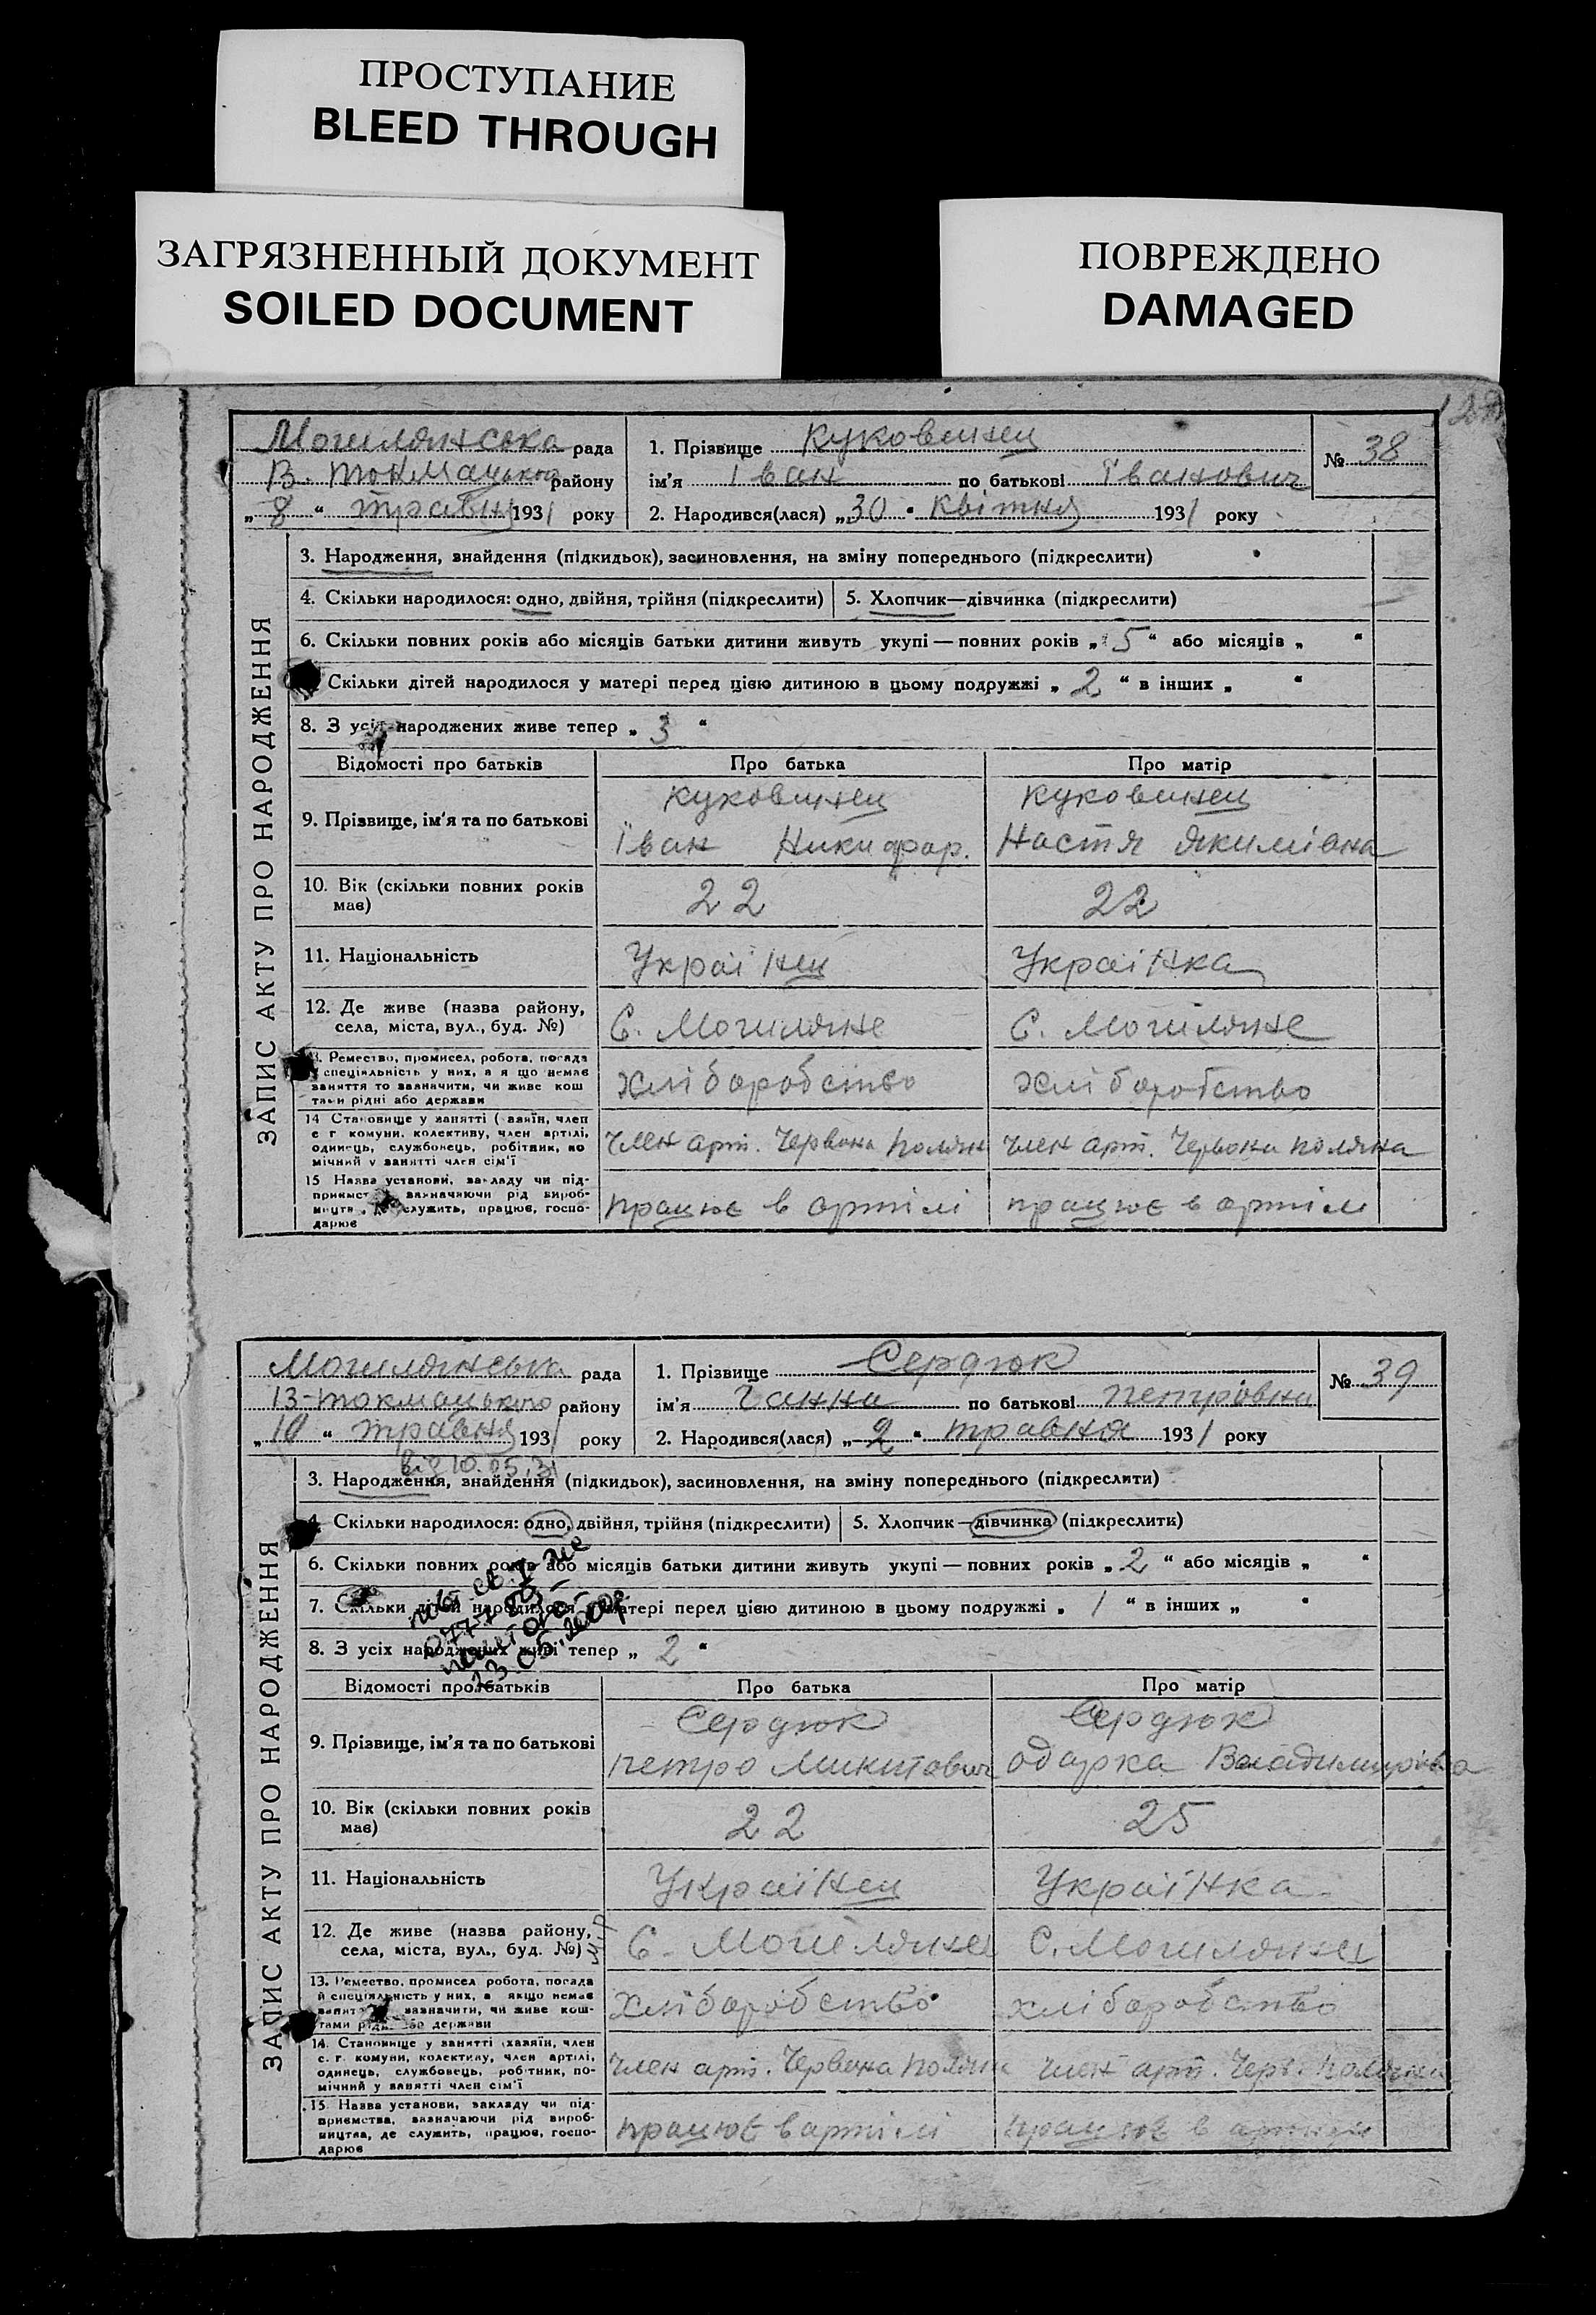 ПРОСТУПАНИЕ
BLEED THROUGH
ЗАГРЯЗНЕННЫЙ ДОКУМЕНТ
SOILED DOCUMENT
ПОВРЕЖДЕНО
DAMAGED
Могилянська рада
В. Токмацького району
„ 8 “ травня 1931 року
1. Прізвище Куковинец
ім'я Іван по батькові Іванович
2. Народився(лася) „30 “ Квітня 1931 року
№ 38
ЗАПИС АКТУ ПРО НАРОДЖЕННЯ
3. Народження, знайдення (підкидьок), засиновлення, на зміну попереднього (підкреслити)
4. Скільки народилося: одно, двійня, трійня (підкреслити)
5. Хлопчик—дівчинка (підкреслити)
6. Скільки повних років або місяців батьки дитини живуть укупі — повних років „ 5 “ або місяців „ “
Скільки дітей народилося у матері перед цією дитиною в цьому подружжі „ 2 “ в інших „ “
8. З усіх народжених живе тепер „ 3 “
Відомості про батьків Про батька Про матір
9. Прізвище, ім'я та по батькові
Куковинец
Іван Никифор.
Куковинец
Настя Якимівна
10. Вік (скільки повних років має)
22 22
11. Національність
Україінец Украінка
12. Де живе (назва району,
села, міста, вул., буд. №)
С. Могиляне С. Могиляне
Ремество, промисел, робота, посада
спеціяльність у них, а я що немає
заняття то зазначити, чи живе кош
тами рідні або держави
хліборобство хліборобство
14 Становище у занятті (хазяїн, член
с г комуни, колективу, член артілі,
одинець, службовець, робітник, по
мічний у занятті член сім'ї
член арт. Червона Полян член арт. Червона Поляна
15 Назва установи, закладу чи під-
приємст зазначаючи рід вироб-
ництв, де служить, працює, госпо-
дарює
працює в артілі працює в артілі
Могилянська рада
В-Токмацького району
„ 10 “ травня 1931 року
1. Прізвище Сердюк
ім'я Ганна по батькові Петровна
2. Народився(лася) „ 2 “ травня 1931 року
№ 39
від 10.05.31
ЗАПИС АКТУ ПРО НАРОДЖЕННЯ
3. Народження, знайдення (підкидьок), засиновлення, на зміну попереднього (підкреслити)
4. Скільки народилося: одно, двійня, трійня (підкреслити)
5. Хлопчик—дівчинка (підкреслити)
6. Скільки повних років або місяців батьки дитини живуть укупі — повних років „ 2 “ або місяців „ “
7. Скільки дітей народилося у матері перед цією дитиною в цьому подружжі „ 1 “ в інших „ “
8. З усіх народжених живі тепер „ 2 “
Відомості про батьків Про батька Про матір
9. Прізвище, ім'я та по батькові
Сердюк
Петро Микитович
Сердюк
Одарка Владимирівна
10. Вік (скільки повних років має)
22 25
11. Національність
Україінец Украінка
12. Де живе (назва району,
села, міста, вул., буд. №)
С. Могиляне С. Могиляне
13. Ремество, промисел робота, посада
й спеціяльність у них, а якщо немає
занят зазначити, чи живе кош-
тами рідні або держави
хліборобство хліборобство
14. Становище у занятті (хазяїн, член
с. г. комуни, колективу, член артілі,
одинець, службовець, робітник, по-
мічний у занятті член сім'ї
член арт. Червона Поляна член арт. Черв. Поляна
15. Назва установи, закладу чи під-
приємства, зазначаючи рід вироб-
ництва, де служить, працює, госпо-
дарює
працює в артілі працює в артілі